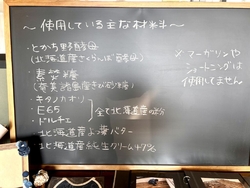 ～使用している主な材料～
・とかち野酵母
(北海道産さくらんぼ酵母)
・素焚糖
(奄美諸島産さとうきび糖)
・キタノカオリ
・E65
・ドルチェ
全て北海道産の小麦
・北海道産よつ葉バター
・北海道産純生クリーム47%
※マーガリンや
ショートニングは
使用してません